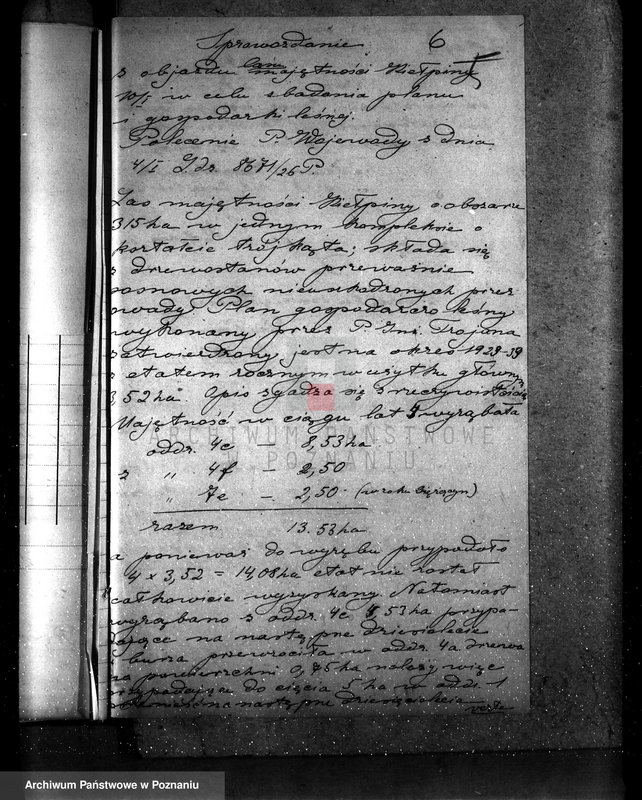 Sprawozdanie 6
z objazdu lasu majętności Kiełpiny
10/I w celu zbadania planu
i gospodarki leśnej.
Polecenie P. Wojewody z dnia
4/I L.dz. 8671/26 P.
Las majętności Kiełpiny o obszarze
315 ha w jednym kompleksie o
kształcie trójkąta; składa się
z drzewostanów przeważnie
sosnowych nieuszkodzonych przez
owady Plan gospodarczo leśny
wykonany przez P. Inż. Trojana
zatwierdzony jest na okres 1923-33
z etatem rocznym w użytku głównym
3,52 ha Opis zgadza się z rzeczywistością
Majętność w ciągu lat 4 wyrąbała
oddz. 4c — 8,53 ha
z " 4f — 2,50
" 7e — 2,50 (w roku bieżącym)
razem 13.53 ha
a ponieważ do wyrębu przypadało
4 x 3,52 = 14,08 ha etat nie został
całkowicie wyzyskany. Natomiast
wyrąbano z oddz. 4c 53 ha przypa-
dające na następne dziesięciolecie
i burza przewróciła w oddz. 4a drzewa
na powierzchni 0,75 ha należy więc
przypadające do cięcia 5 ha w oddz. 1
przenieść na następne dziesięciolecie
verte
ARCHIWUM PAŃSTWOWE
W POZNANIU
Archiwum Państwowe w Poznaniu